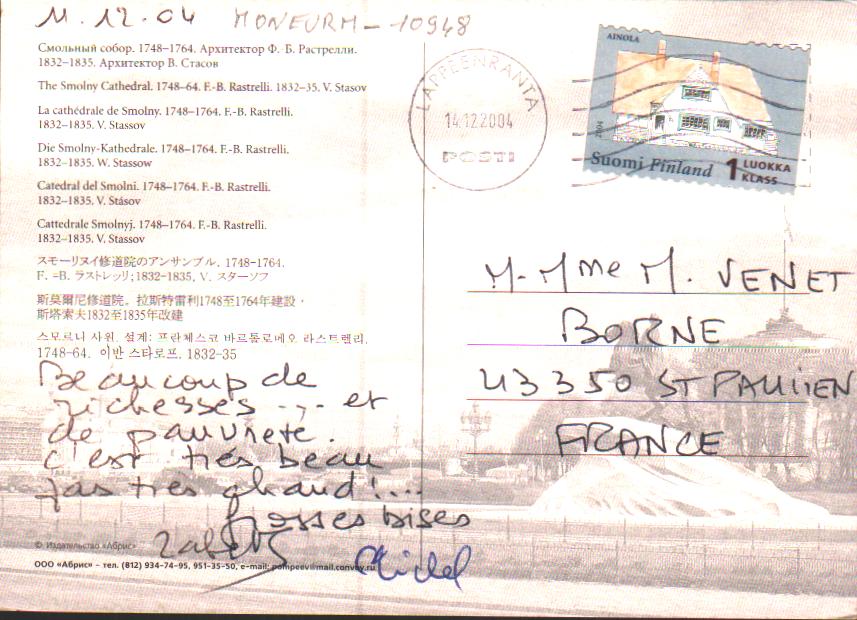 11.12.04 MONEURM-10948
Смольный собор. 1748–1764. Архитектор Ф.-Б. Растрелли.
1832–1835. Архитектор В. Стасов
The Smolny Cathedral. 1748–64. F.-B. Rastrelli. 1832–35. V. Stasov
La cathédrale de Smolny. 1748–1764. F.-B. Rastrelli.
1832–1835. V. Stassov
Die Smolny-Kathedrale. 1748–1764. F.-B. Rastrelli.
1832–1835. W. Stassow
Catedral del Smolni. 1748–1764. F.-B. Rastrelli.
1832–1835. V. Stásov
Cattedrale Smolnyj. 1748–1764. F.-B. Rastrelli.
1832–1835. V. Stassov
スモーリヌイ修道院のアンサンブル. 1748-1764.
F. =B. ラストレッリ;1832-1835, V. スターソフ
斯莫爾尼修道院。拉斯特雷利1748至1764年建設，
斯塔索夫1832至1835年改建
스모르니 사원. 설계: 프란체스코 바르톨로메오 라스트렐리.
1748-64. 이반 스타로프. 1832-35
Beaucoup de
richesses ... et
de pauvreté.
c'est très beau
pas très chaud !....
Grosses bises
Zabeth
Michel
© Издательство «Абрис»
ООО «Абрис» – тел. (812) 934-74-95, 951-35-50, e-mail: pompeev@mail.convey.ru
LAPPEENRANTA
14.12.2004
POSTI
AINOLA
2004
Suomi Finland 1 LUOKKA
KLASS
M-Mme M. VENET
BORNE
43350 ST PAULIEN
FRANCE